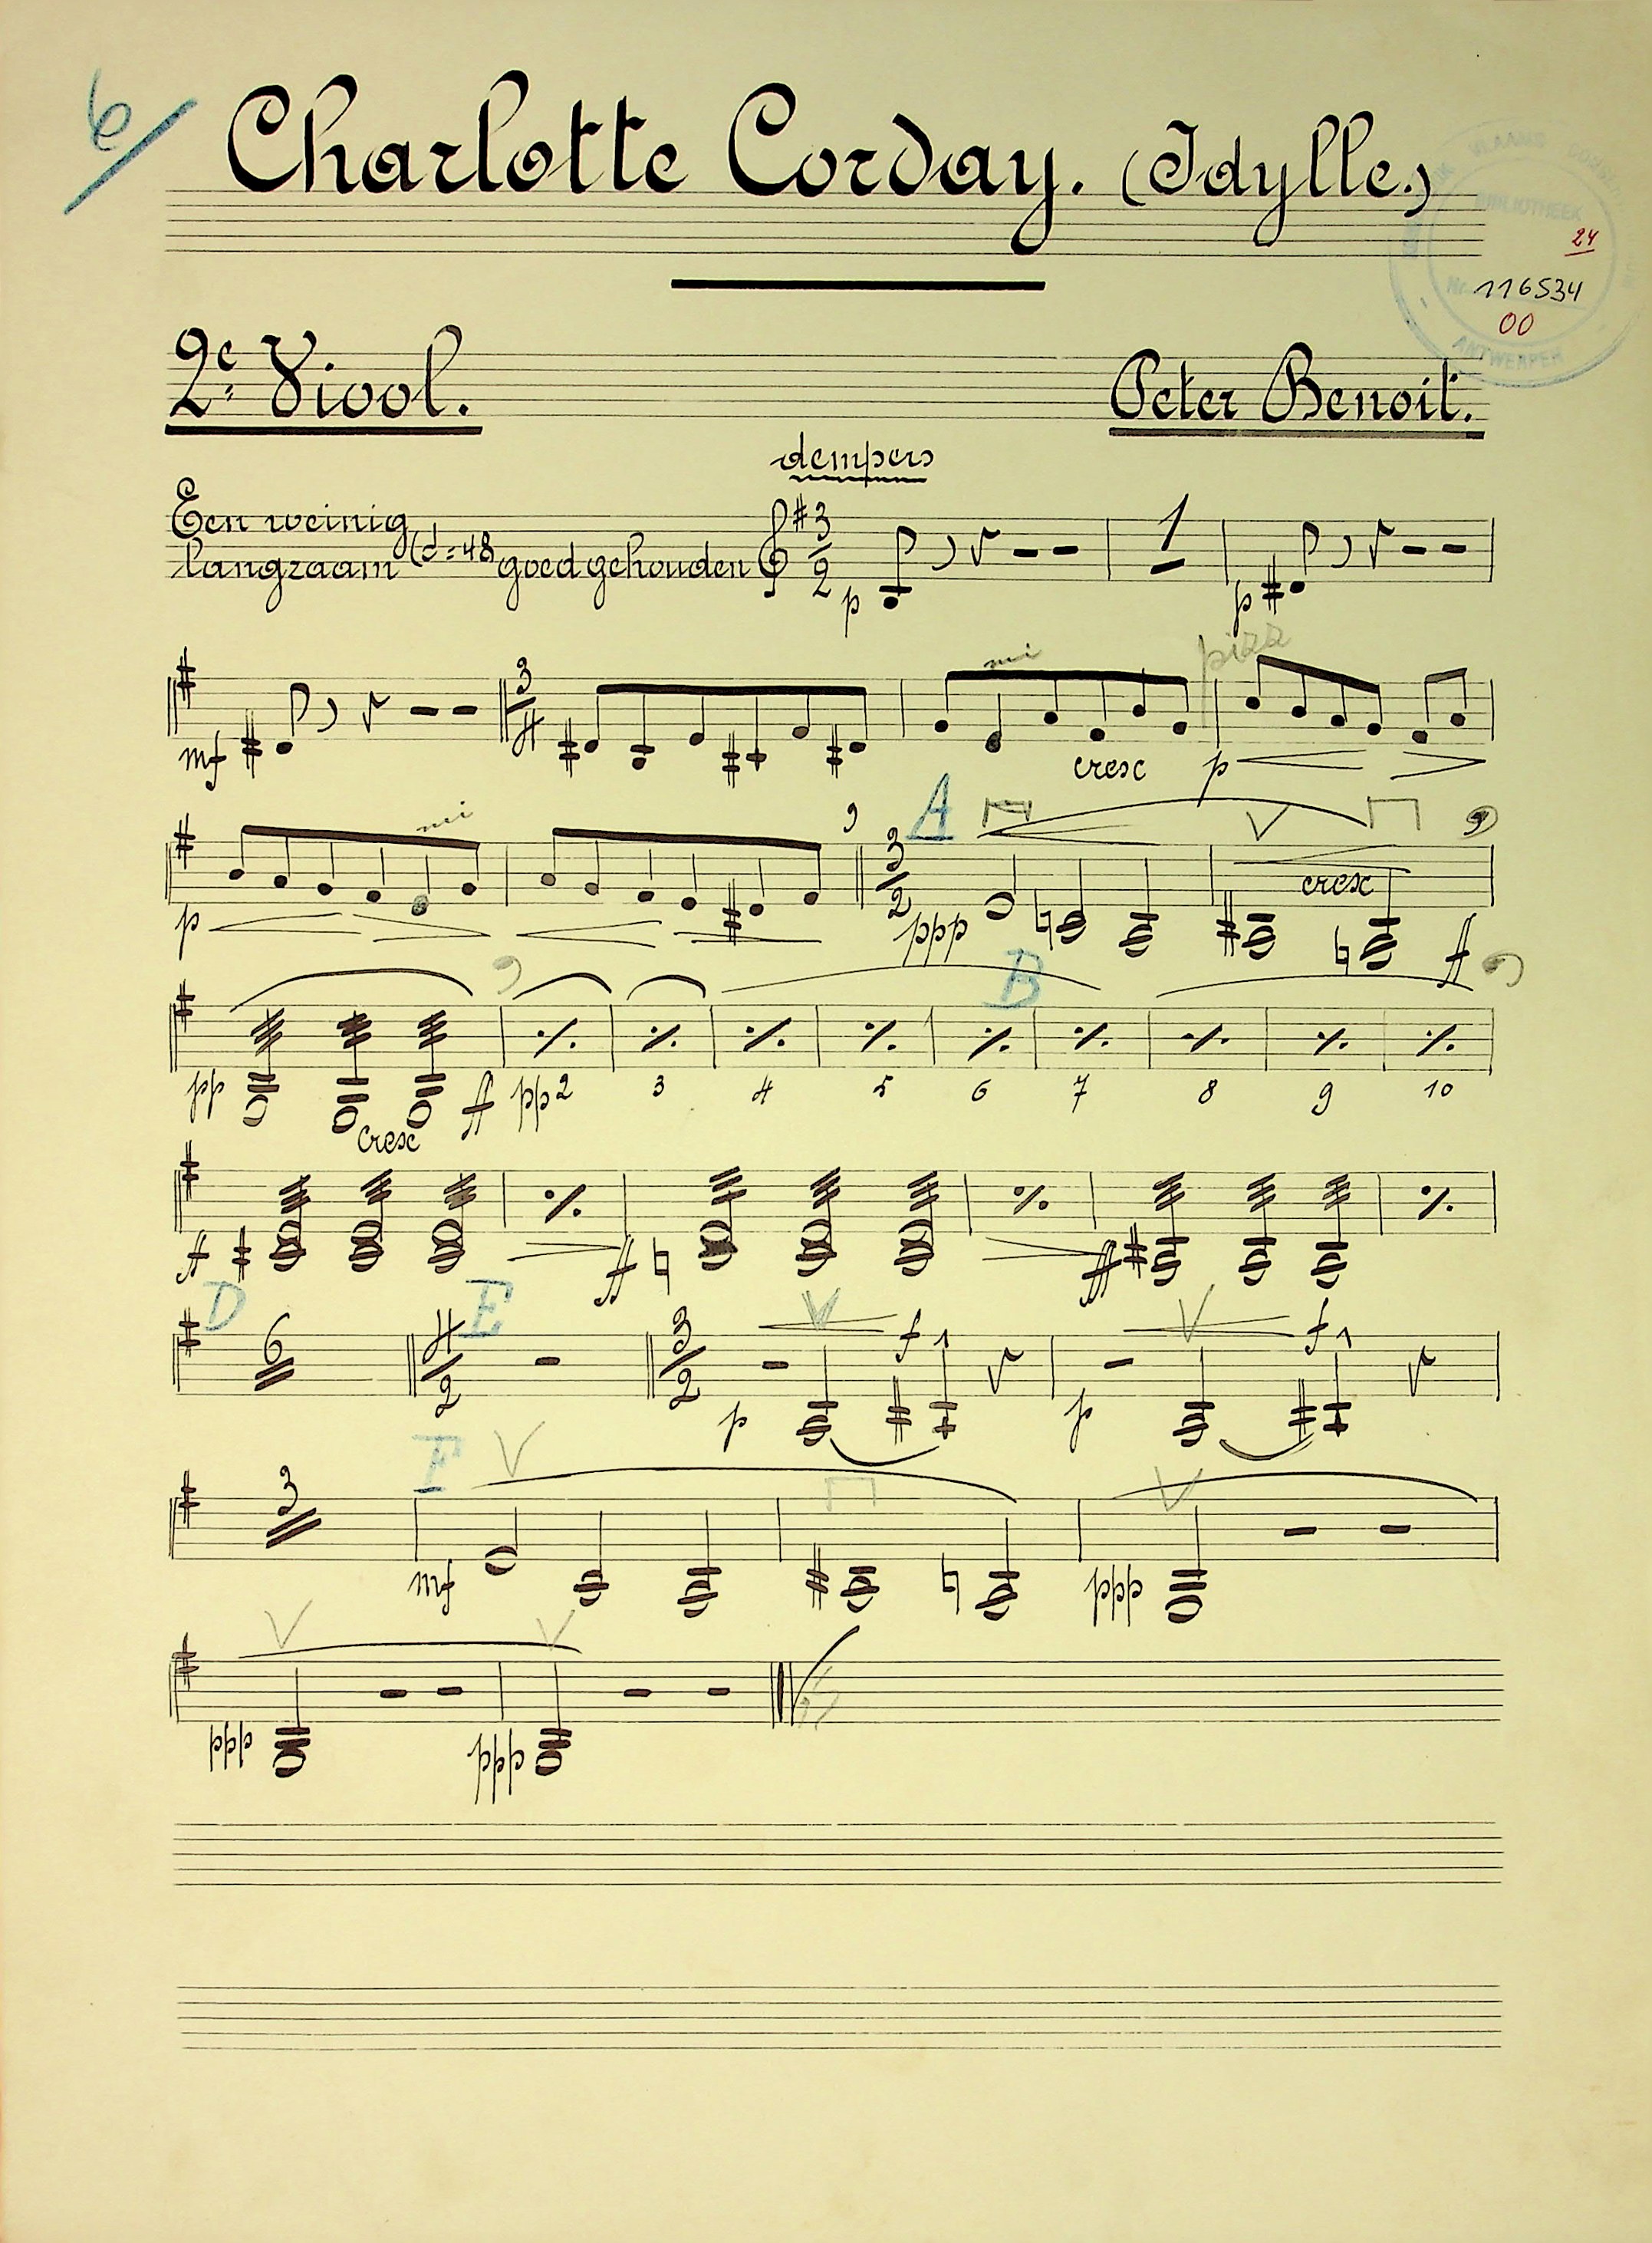 6
Charlotte Corday. (Idylle.)
VLAAMS
BIBLIOTHEEK
24
Nr. 116534
00
ANTWERPEN
2e Viool.
Peter Benoit.
dempers
Een weinig
langzaam (d = 48) goed gehouden 3/2 p 1 p
pizz
mf 3/4 mi cresc p
A
p mi 3/2 ppp cresc ff
B
pp cresc ff pp 2 3 4 5 6 7 8 9 10
ff ff fff
D E
6 4/2 3/2 p f p f
F
3 mf ppp
ppp ppp